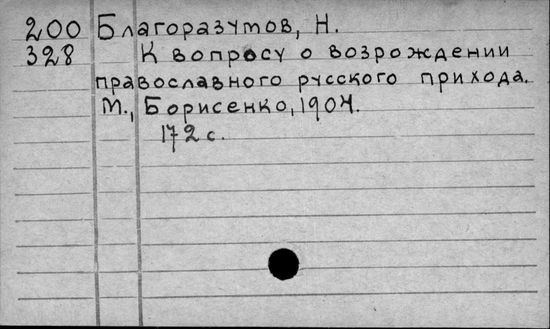 200 Благоразумов, Н.
328 К вопросу о возрождении
православного русского прихода.
М., Борисенко, 1904.
172 с.